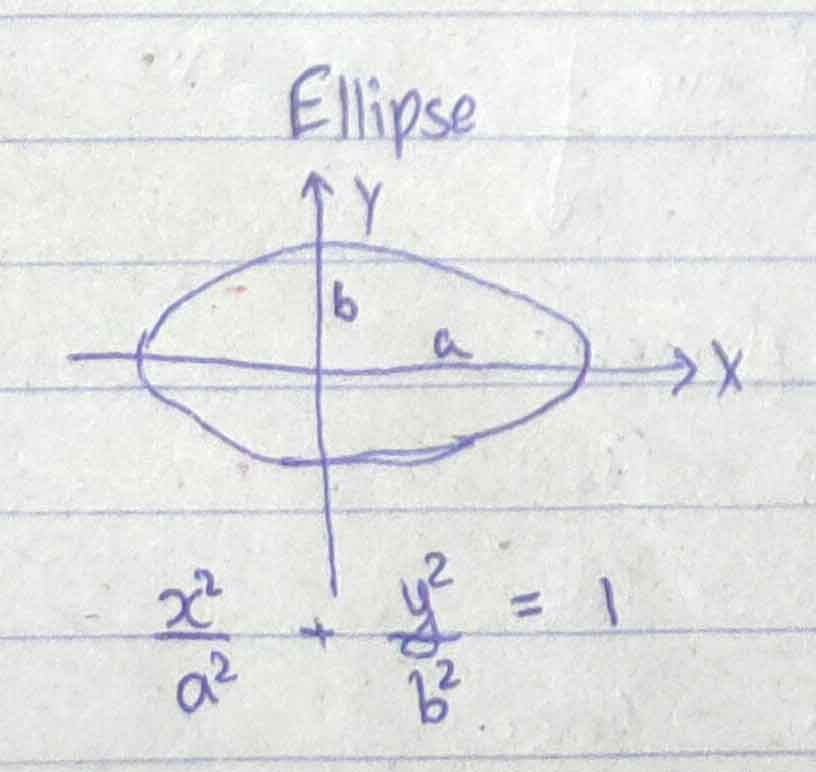 Ellipse
Y
b
a
X
x²/a² + y²/b² = 1